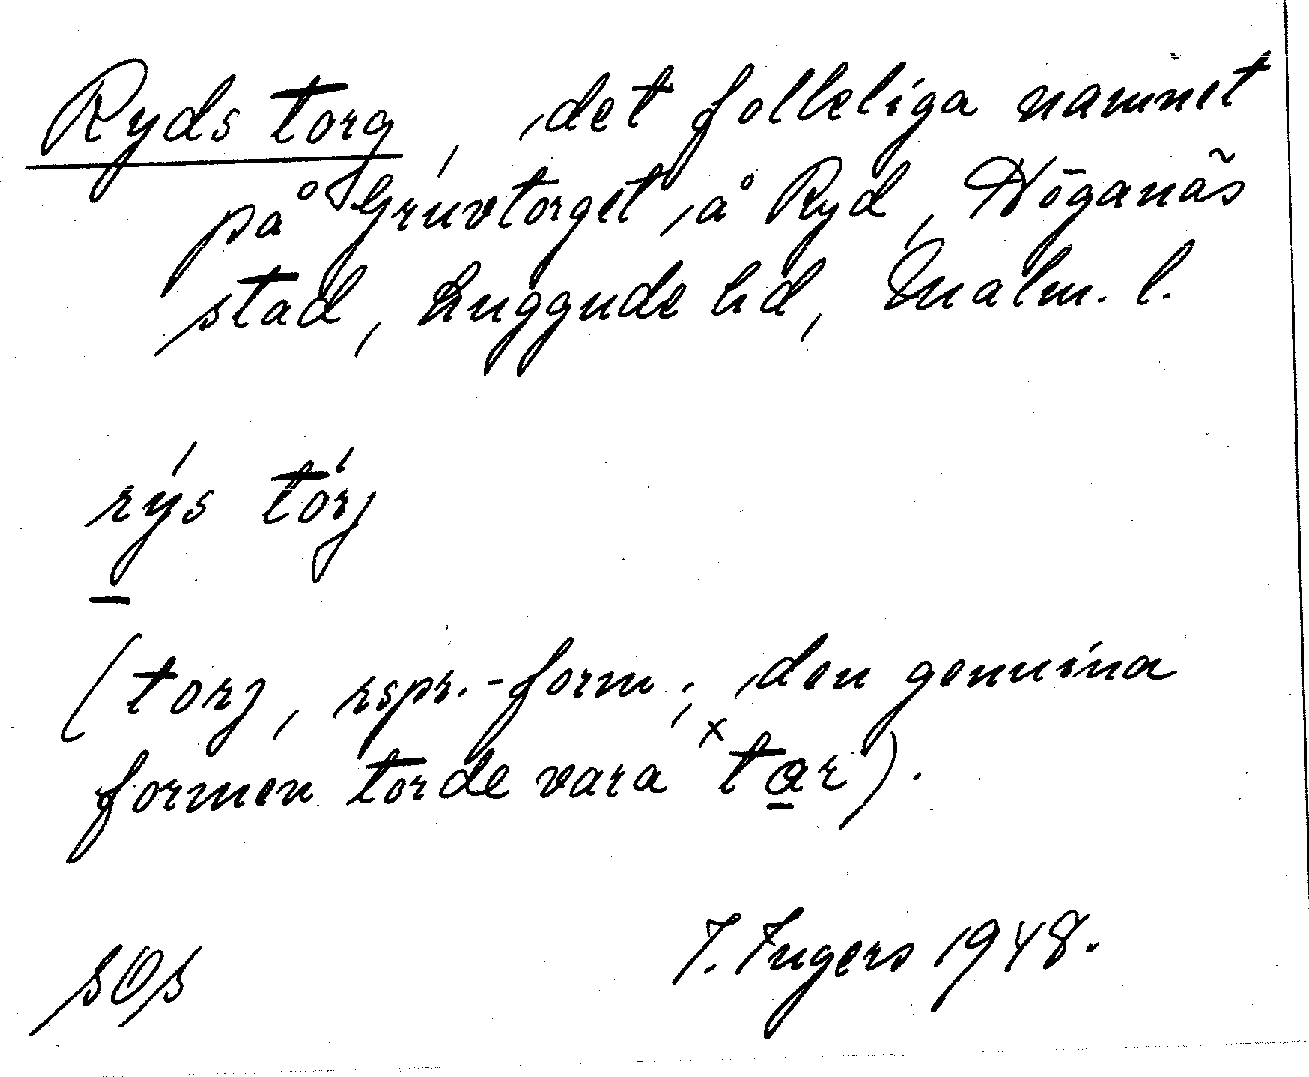 Ryds torg, det folkeliga namnet
på Gruvtorget, å Ryd, Höganäs
stad, Luggude hd, Malm. l.
rýs tórj
(torj, rspr.-form; den genuina
formen torde vara ˣtar).
SOS
I. Ingers 1948.